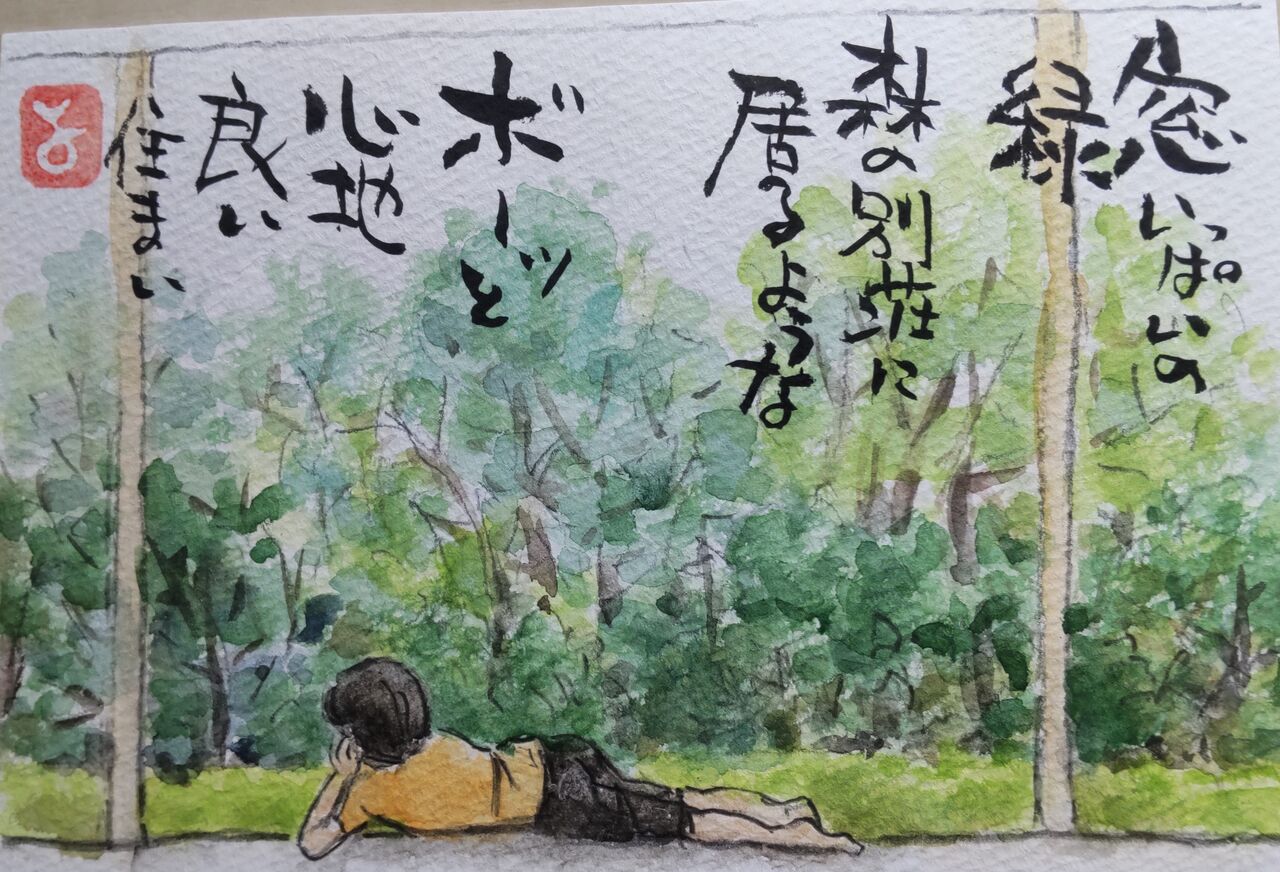 窓いっぱいの
緑に
森の別荘に
居るような
ボーッと
心地
良い
住まい